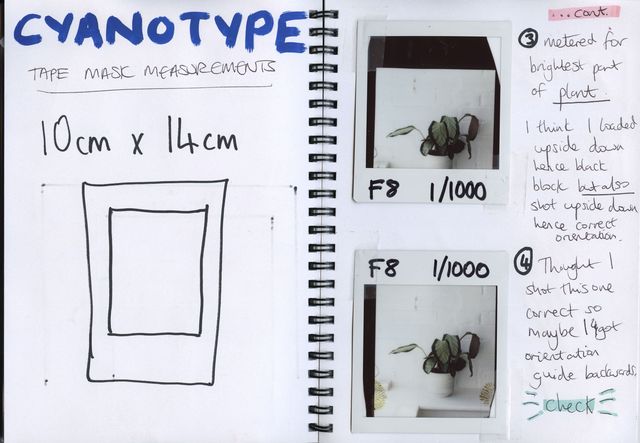 CYANOTYPE
TAPE MASK MEASUREMENTS
10cm x 14cm
F8 1/1000
F8 1/1000
...cont.
3 metered for
brightest part
of plant.
I think I loaded
upside down
hence black
block but also
shot upside down
hence correct
orientation.
4 Thought I
shot this one
correct so
maybe I got
orientation
guide backwards.
check